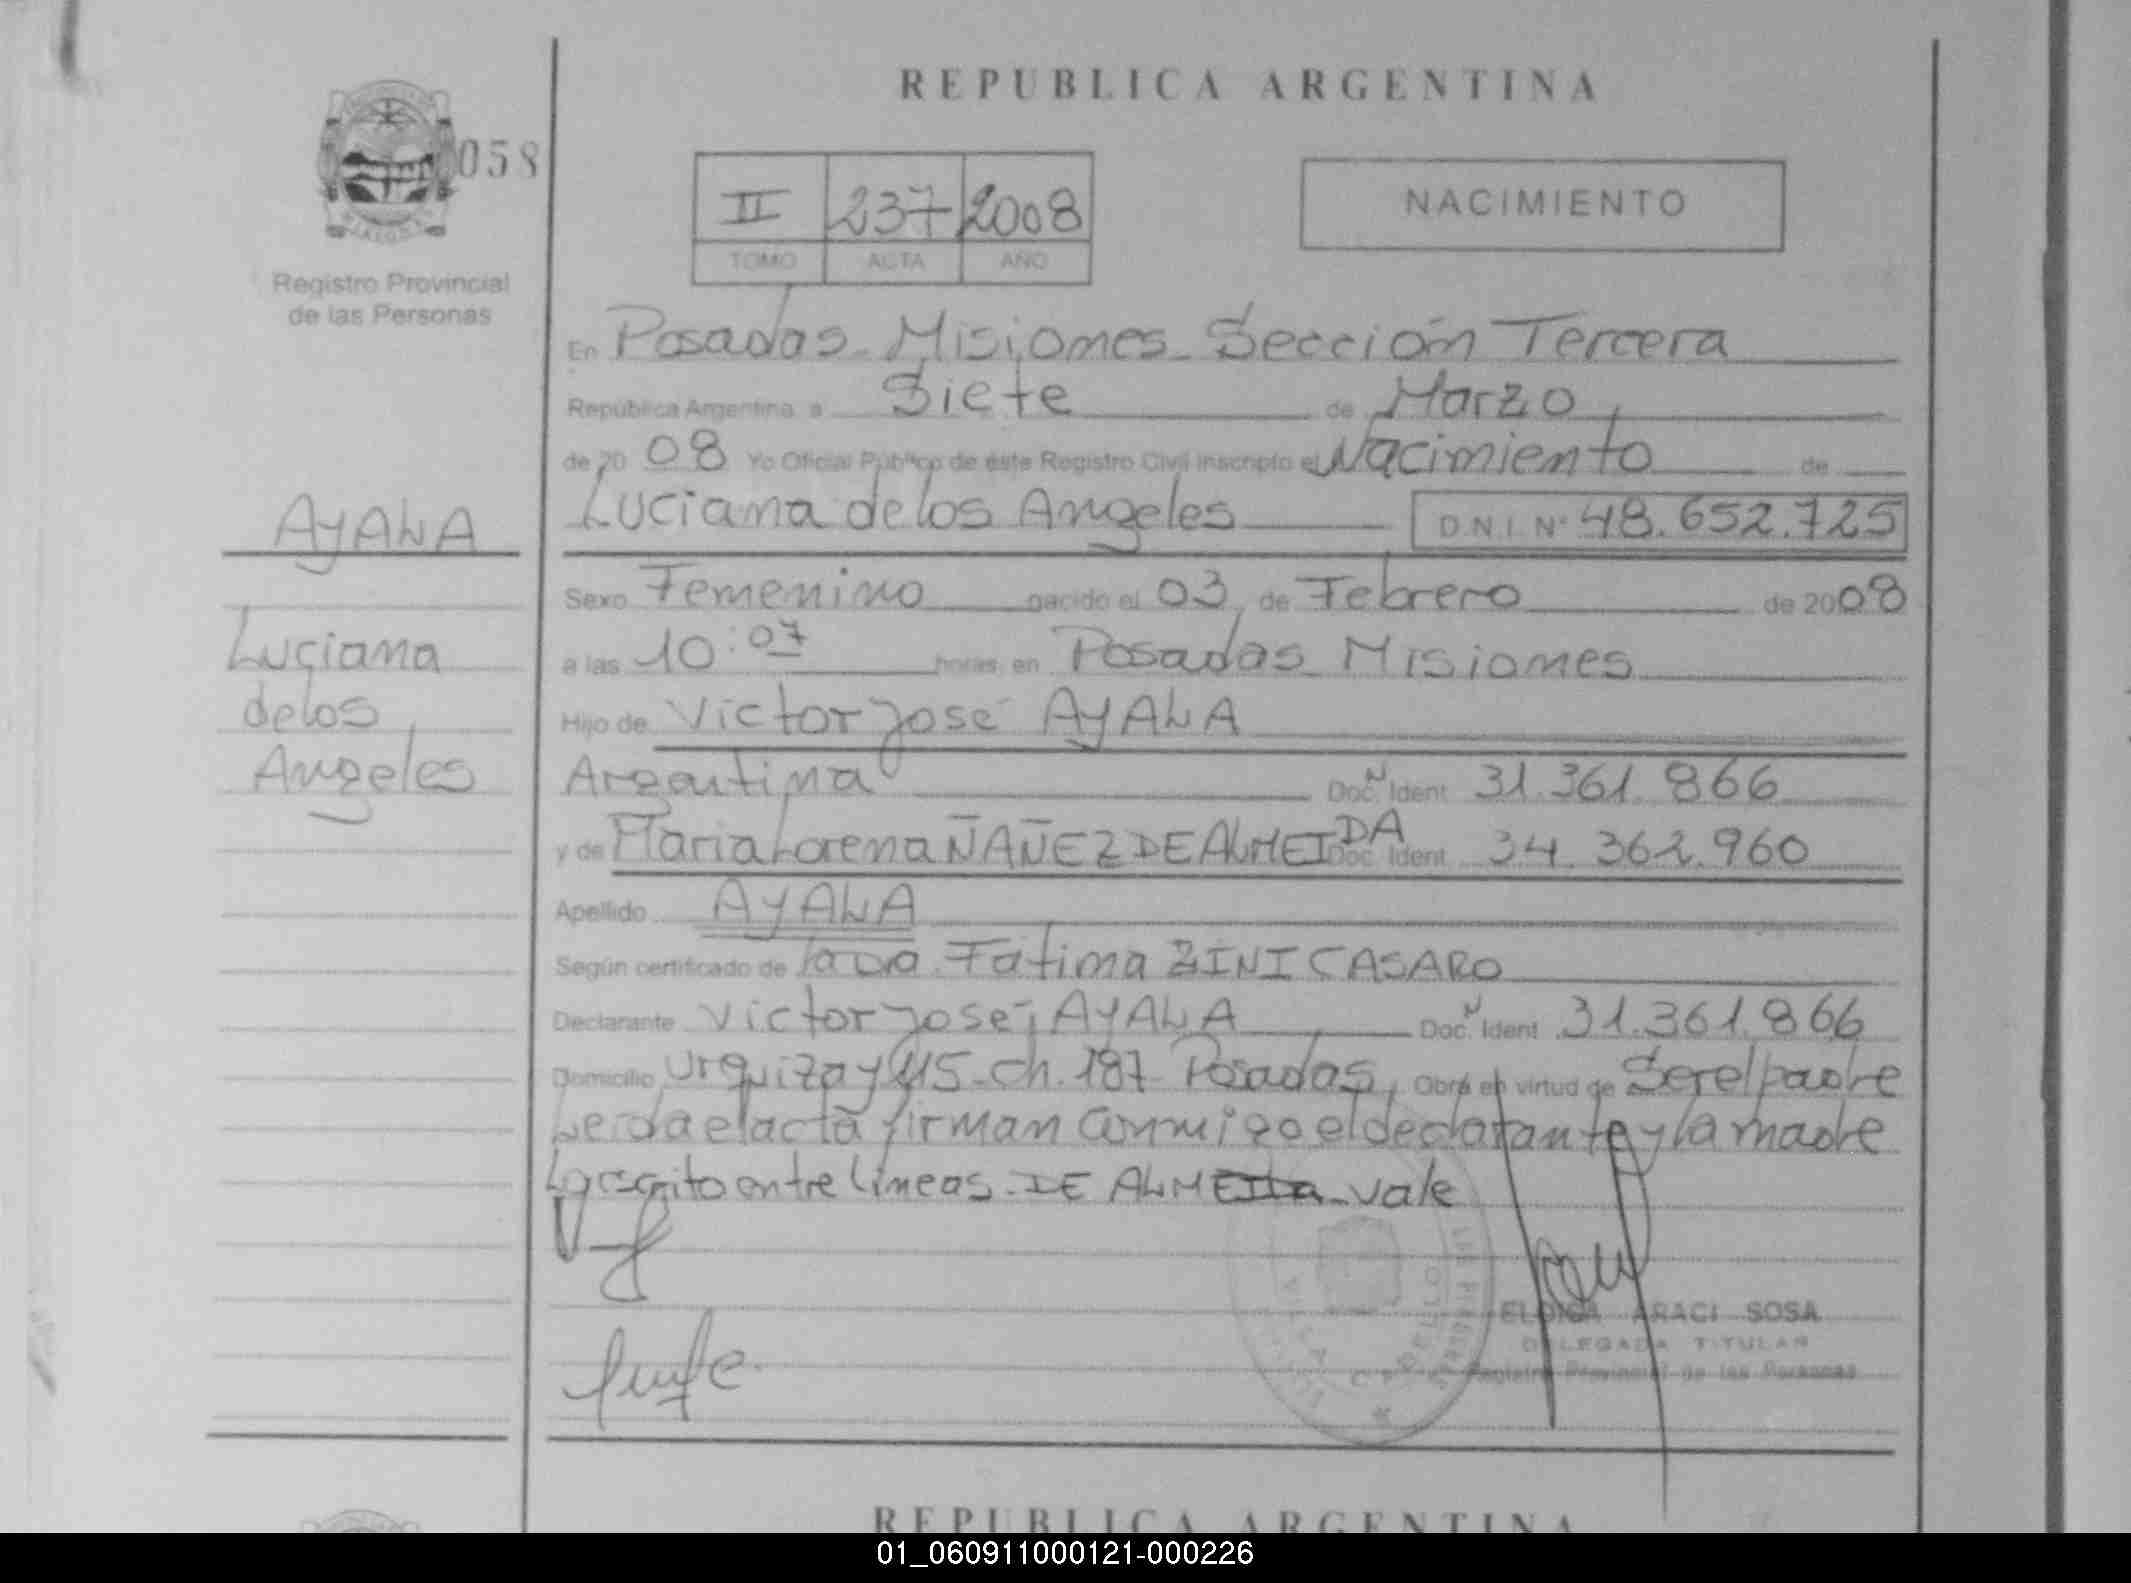 REPUBLICA ARGENTINA
058
II 237 2008
TOMO ACTA AÑO
NACIMIENTO
Registro Provincial
de las Personas
En Posadas Misiones Sección Tercera
República Argentina a Siete de Marzo
de 20 08 Yo Oficial Público de éste Registro Civil inscripto el Nacimiento de
Luciana de los Angeles D.N.I. Nº 48.652.725
AYALA
Luciana
de los
Angeles
Sexo Femenino nacido el 03 de Febrero de 2008
a las 10:07 horas, en Posadas Misiones
Hijo de Victor José AYALA
Argentina Doc. Ident 31.361.866
y de Maria Lorena ÑAÑEZ DE ALMEIDA Doc. Ident 34.362.960
Apellido AYALA
Según certificado de Fátima ZINI CASARO
Declarante Victor José AYALA Doc. Ident 31.361.866
Domicilio Urquiza y 115 - Ch. 187 - Posadas, Obra en virtud de Ser el padre
Leída el acta firman conmigo el declarante y la madre
Lo escrito entre lineas - DE ALMEIDA - vale
ELOISA ARACI SOSA
DELEGADA TITULAR
Registro Provincial de las Personas
REPUBLICA ARGENTINA
01_060911000121-000226